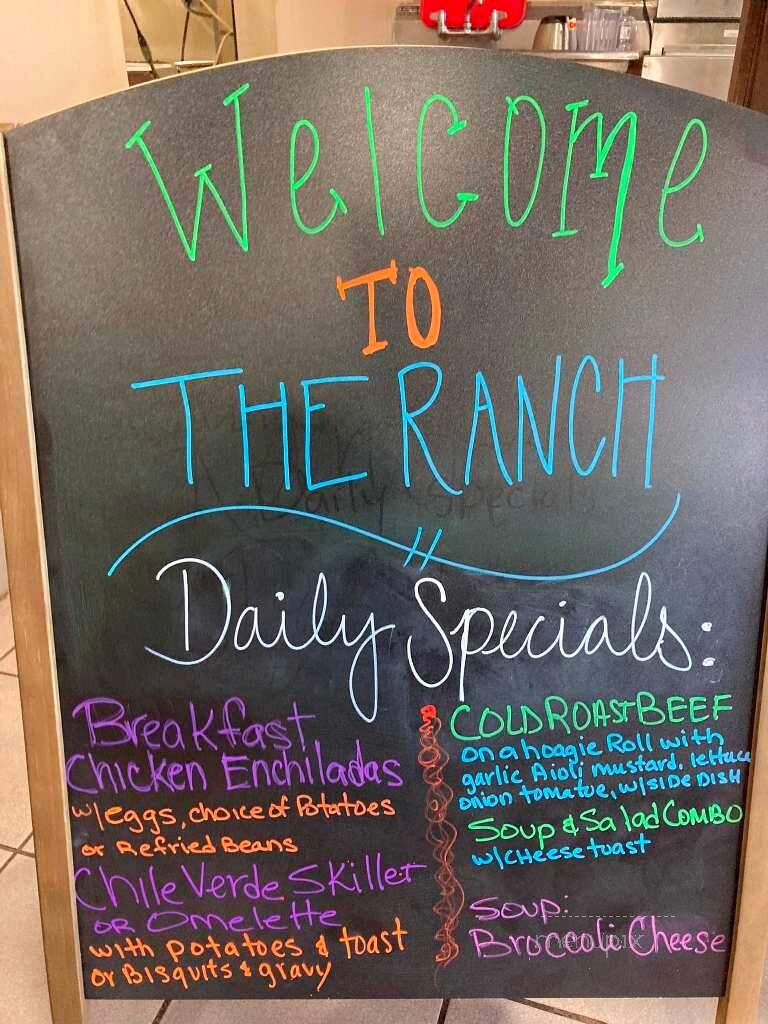 Welcome
TO
THE RANCH
Daily Specials
Daily Specials:
Breakfast
Chicken Enchiladas
w/eggs, choice of Potatoes
or Refried Beans
Chile Verde Skillet
OR Omelette
with potatoes & toast
or Bisquits & gravy
COLD ROAST BEEF
on a hoagie Roll with
garlic Aioli mustard, lettuce
onion tomatoe, w/SIDE DISH
Soup & Salad COMBO
w/CHeese toast
Soup:
Broccoli Cheese
menupix